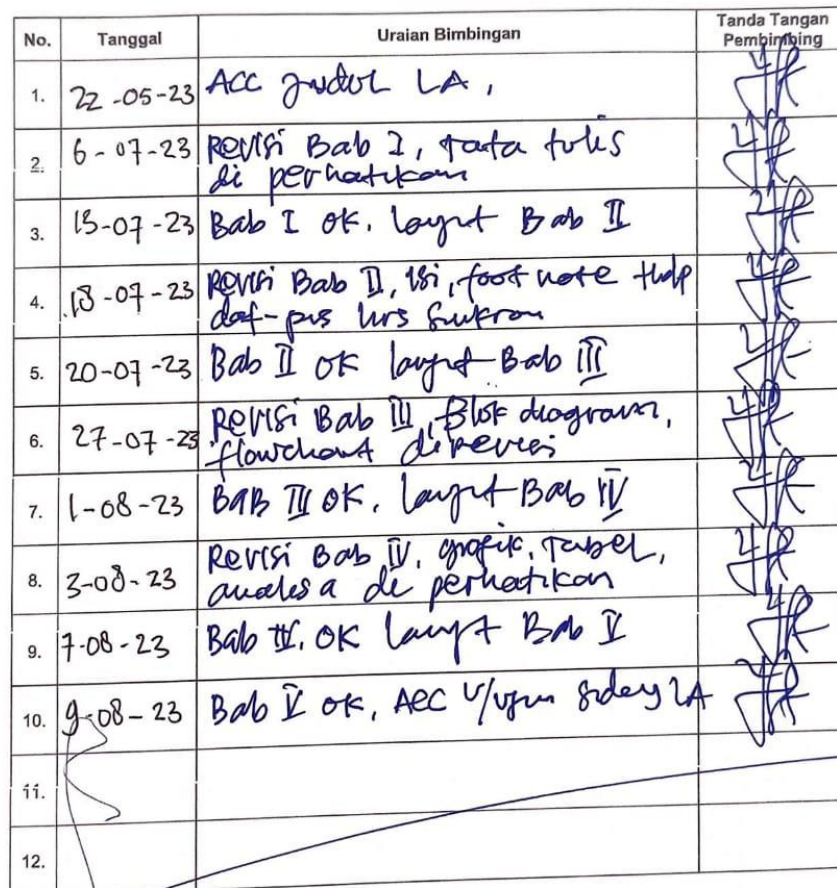 No. Tanggal Uraian Bimbingan Tanda Tangan Pembimbing
1. 22-05-23 ACC Judul LA,
2. 6-07-23 Revisi Bab I, tata tulis
di perhatikan
3. 13-07-23 Bab I OK. lanjut Bab II
4. 18-07-23 Revisi Bab II, isi, foot note thdp
daf-pus hrs sinkron
5. 20-07-23 Bab II OK lanjut Bab III
6. 27-07-23 Revisi Bab III, Blok diagram,
flowchart direvisi
7. 1-08-23 BAB III OK. lanjut Bab IV
8. 3-08-23 Revisi Bab IV, grafik, Tabel,
analisa di perhatikan
9. 7-08-23 Bab IV. OK lanjut Bab V
10. 9-08-23 Bab V OK, ACC u/ujian sidang LA
11.
12.